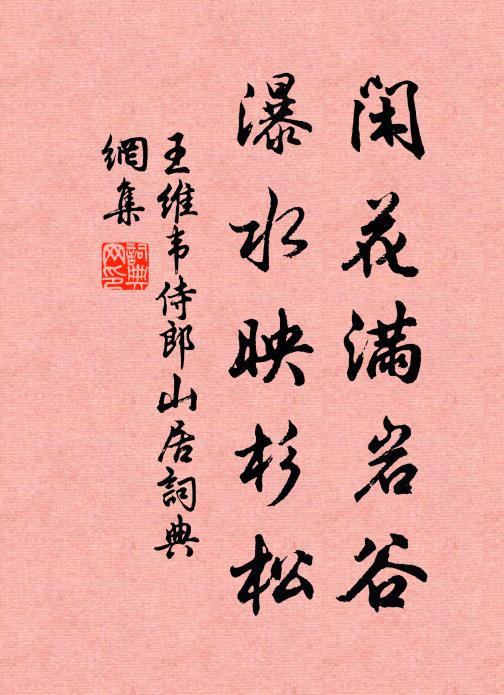 闲花满岩谷
瀑水映杉松
王维韦侍郎山居詞典
網集
詞典
网印